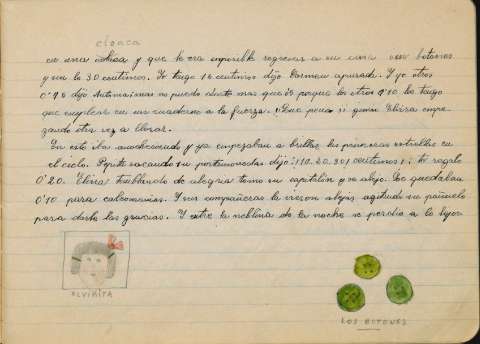 cloaca
en una cloaca y que le era imposible regresar a su casa sin botones
y sin lo 30 centimos. Yo tengo 15 centimos dijo Carmen apurada. Y yo otros
0'15 dijo Antimanimas no puedo darte mas que 5 porque los otros 0'10 los tengo
que emplear en un cuaderno a la fuerza. ¡Que pena si gemia Elvira empe-
zando otra vez a llorar.
En esto iba anocheciendo y ya empezaban a brillar las primeras estrellas en
el cielo. Pepita sacando su portamonedas dijo: ¡10. 20. 30! centimos; te regalo
0'20. Elvira temblando de alegria tomo su capitalón y se alejo. Le quedaban
0'10 para calcomanias. Y sus compañeras la vieron alejarse agitando su pañuelo
para darles las gracias. Y entre la neblina de la noche se perdia a lo lejos.
ELVIRITA
LOS BOTONES